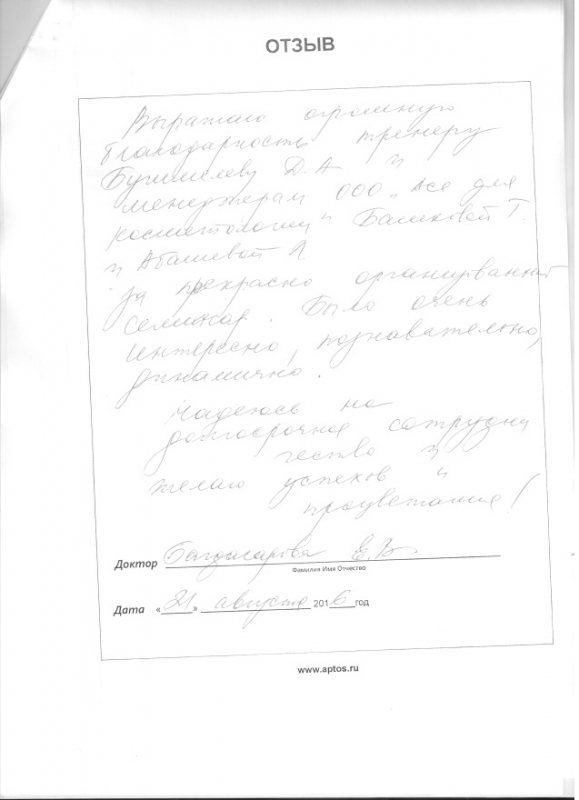 ОТЗЫВ
Выражаю огромную
благодарность тренеру
Д.А и
менеджерам ООО „Все для
косметологии" Башковой Т.
и Абашевой Л
за прекрасно организованный
семинар. Было очень
интересно, познавательно,
динамично.
Надеюсь на
долгосрочное сотрудни
чество и
желаю успехов и
процветания!
Доктор Багдасарова Е.В.
Фамилия Имя Отчество
Дата «21» августа 2016 год
www.aptos.ru